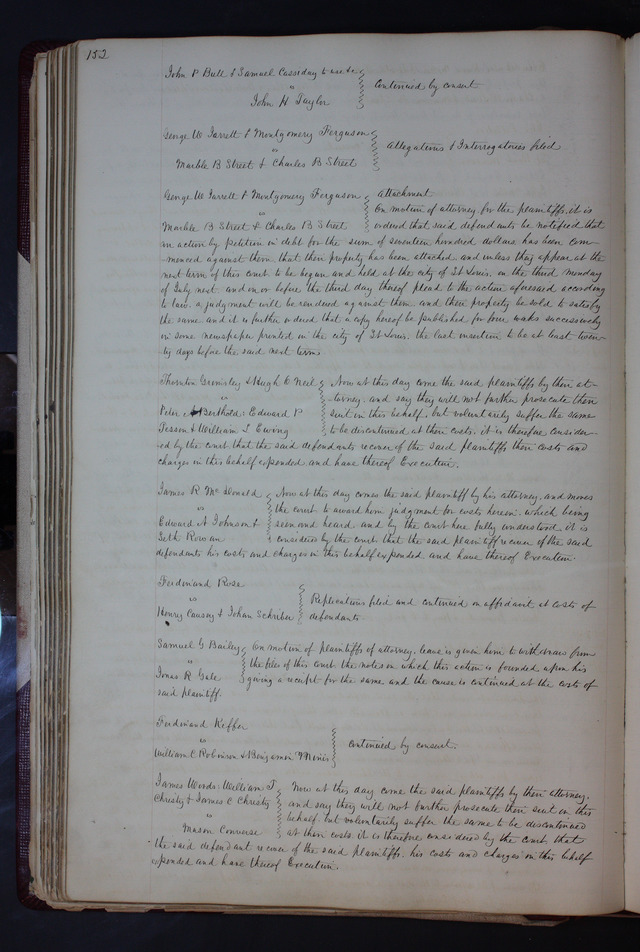 152
John P Bull & Samuel Cassiday to use &c
vs
John H Taylor
Continued by consent
George W Jarrett & Montgomery Ferguson
vs
Marble B Street & Charles B Street
Allegations & Interrogatories filed
George W Jarrett & Montgomery Ferguson
vs
Marble B Street & Charles B Street
Attachment
On motion of attorney for the plaintiffs, it is
ordered that said defendants be notified that
an action by petition in debt for the sum of seventeen hundred dollars has been com-
-menced against them that their property has been attached, and unless they appear at the
next term of this court to be begun and held at the city of St Louis, on the third Monday
of July next and on or before the third day thereof plead to the action aforesaid according
to law, a judgment will be rendered against them and their property be sold to satisfy
the same and it is further ordered that a copy hereof be published for four weeks successively
in some newspaper printed in the city of St Louis, the last insertion to be at least twen-
ty days before the said next term
Thornton Grimsley & Hugh O Neil
vs
Peter Berthold: Edward P
Tesson & William L Ewing
Now at this day come the said plaintiffs by their at-
-torney, and say they will not further prosecute their
suit in this behalf, but voluntarily suffer the same
to be discontinued at their costs, it is therefore consider-
ed by the court that the said defendants recover of the said plaintiffs their costs and
charges in this behalf expended and have thereof Execution.
James R McDonald
vs
Edward A Johnson &
Seth Rowan
Now at this day comes the said plaintiff by his attorney, and moves
the court to award him judgment for costs herein, which being
seen and heard, and by the court here fully understood, it is
considered by the court that the said plaintiff recover of the said
defendants his costs and charges in this behalf expended and have thereof Execution.
Ferdinand Rose
vs
Henry Causey & Johan Schriber
Replications filed and continued on affidavit at costs of
defendants
Samuel G Bailey
vs
Jonas R Gale
On motion of plaintiffs attorney, leave is given him to withdraw from
the files of this court the notes on which this action is founded upon his
giving a receipt for the same and the cause is continued at the costs of
said plaintiff.
Ferdinand Keffer
vs
William C Robinson & Benjamin Minis
Continued by consent.
James Woods: William T
Christy & James C Christy
vs
Mason Converse
Now at this day come the said plaintiffs by their attorney,
and say they will not further prosecute their suit in this
behalf, but voluntarily suffer the same to be discontinued
at their costs it is therefore considered by the court that
the said defendant recover of the said plaintiffs, his costs and charges in this behalf
expended and have thereof Execution.